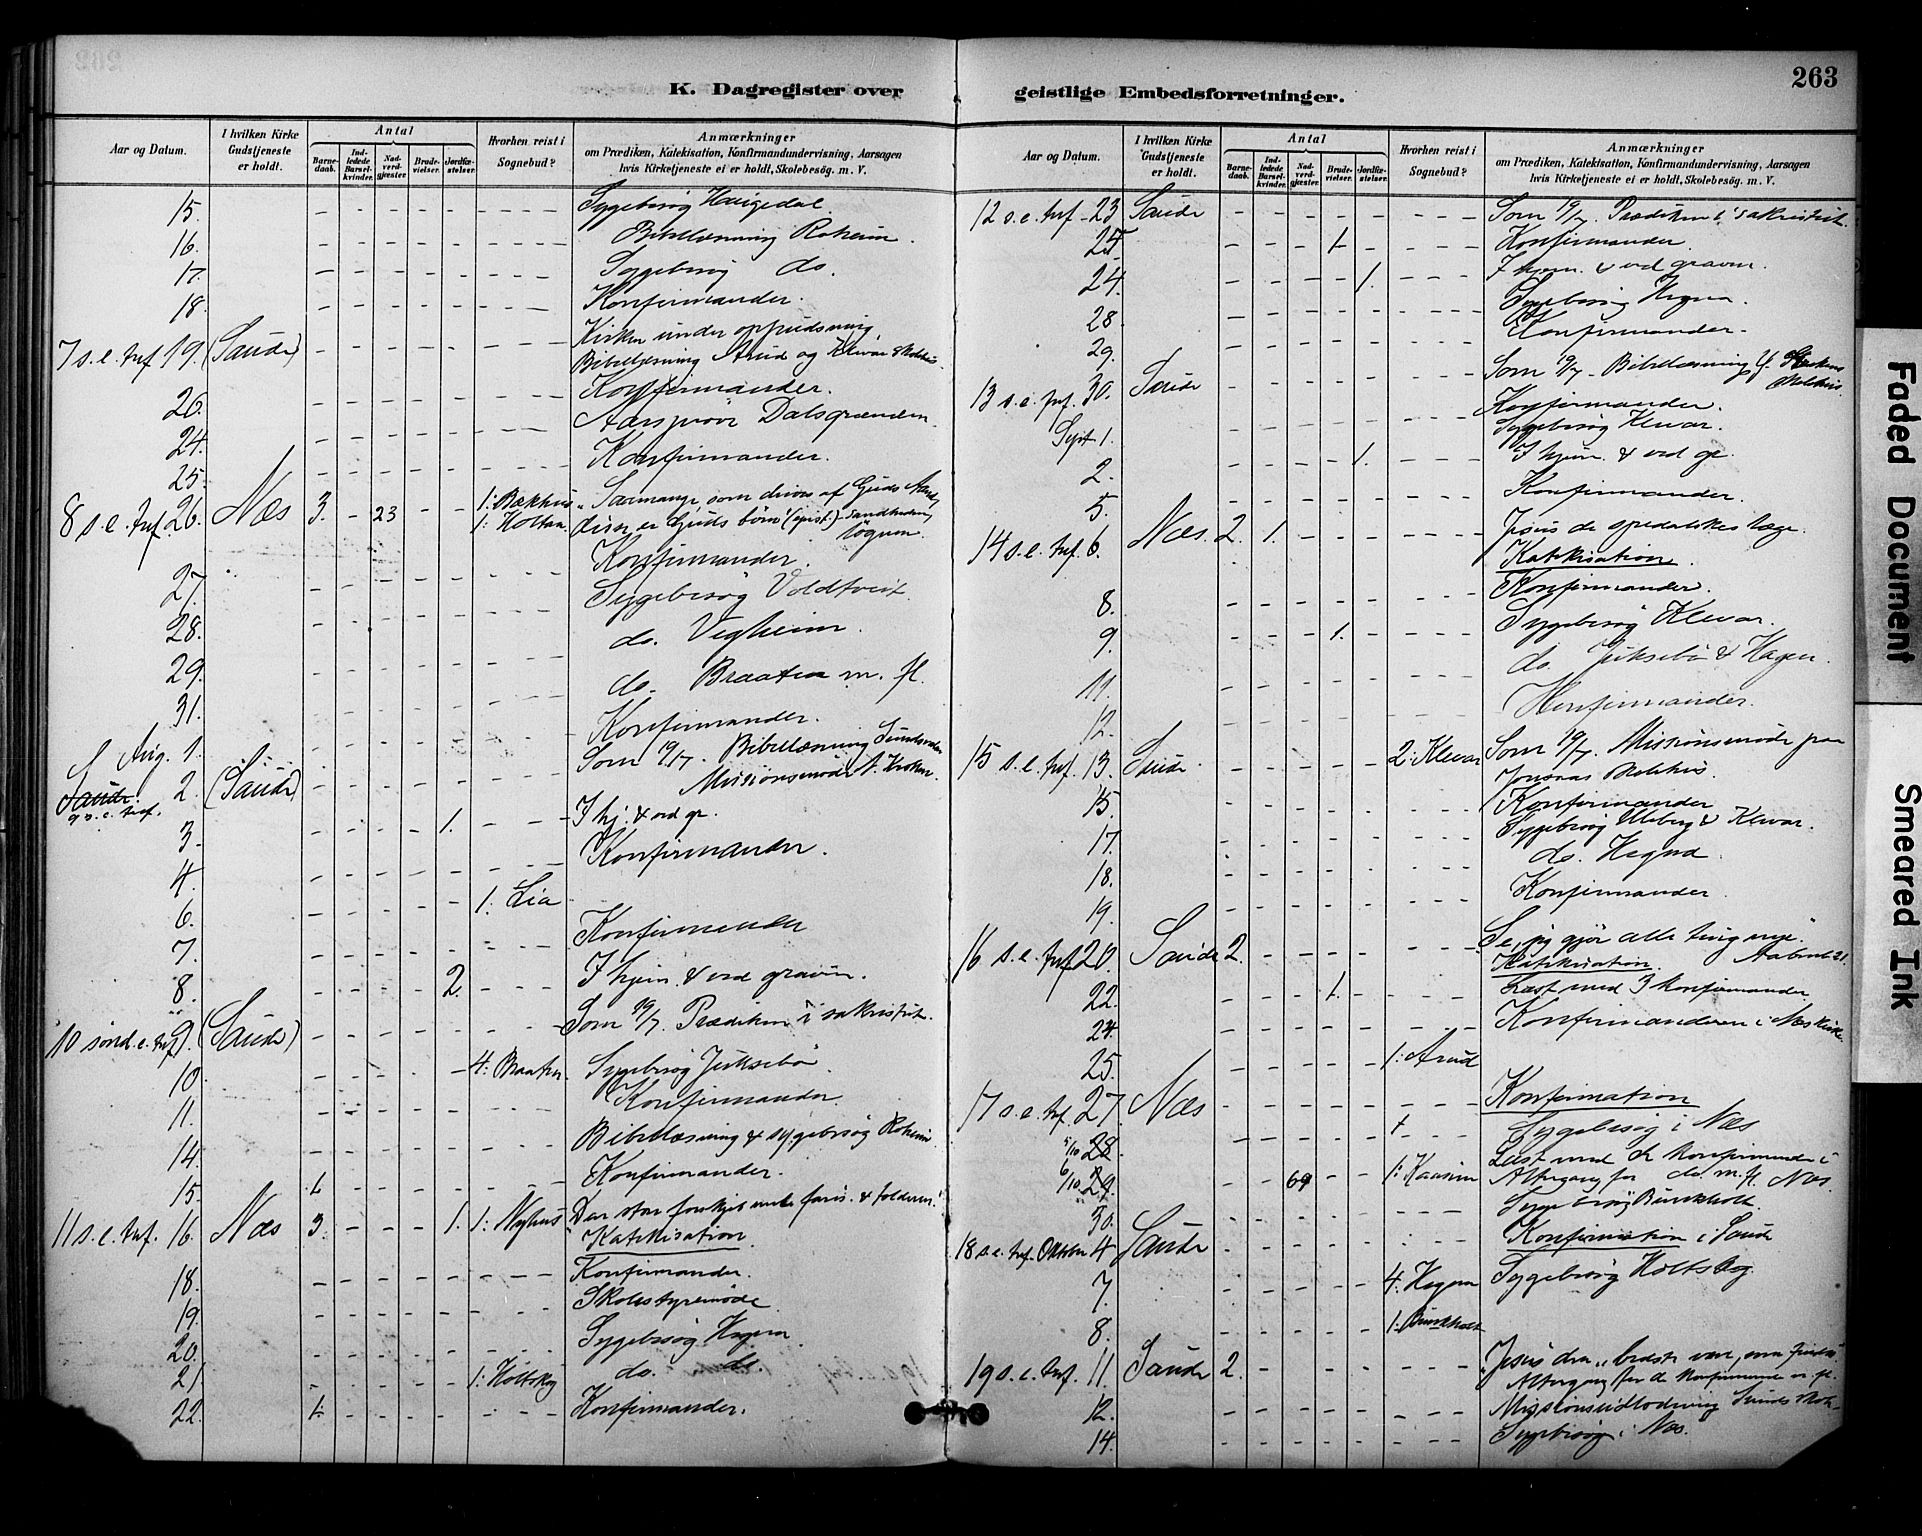 263
K. Dagregister over geistlige Embedsforretninger.
Aar og Datum.
I hvilken Kirke Gudstjeneste er holdt.
Antal
Barnedaab.
Indledede Barselkvinder.
Nadverdgjæster
Brudevielser.
Jordfæstelser.
Hvorhen reist i Sognebud?
Anmærkninger
om Prædiken, Katekisation, Konfirmandundervisning, Aarsagen
hvis Kirketjeneste ei er holdt, Skolebesøg. m. V.
15. Sygebesøg Haugedal
16. Bibellæsning Roheim.
17. Sygebesøg do.
18. Konfirmander.
7 s. e. tref 19. (Saude) Kirken under oppudsning
Bibellæsning Arud og Klevar
20. Konfirmander.
24. Aarsprøve Dalsgrænden
25. Konfirmander.
8 s. e. tref. 26. Næs 3. - 23 - - 1: Bækhus "Saamange, som drives af Guds Aand,
1: Holtan. disse er Guds børn" (epist.)
27. Konfirmander.
28. Sygebesøg Voldtveit
29. do. Vegheim.
31. do. Braaten m. fl.
Aug. 1. Konfirmander.
Saude 9 s. e. tref. 2. (Saude) Som 19/7. Bibellæsning
Missionsmøde N. Kroken.
3. 1. I hj. & ved gr.
4. Konfirmander.
6. 1: Lia
7. Konfirmander
8. 2. I hjem. & ved graven.
10 sønd. e. tref 9. (Saude) Som 19/7. Prædiken i sakristiet.
10. 4: Braaten. Sygebesøg Juksebø
11. Konfirmander
14. Bibellæsning & sygebesøg Roheim
15. 1. Konfirmander.
11 s. e. tref. 16. Næs 3. 1. 1: Nyhus Den store forskjel mell. faris. & tolderen.
Katekisation
18. Konfirmander.
19. Skolestyremøde
20. Sygebesøg Hegna
21. 1: Holtskog do. do.
22. 1. Konfirmander.
Aar og Datum.
I hvilken Kirke Gudstjeneste er holdt.
Antal
Barnedaab.
Indledede Barselkvinder.
Nadverdgjæster
Brudevielser.
Jordfæstelser.
Hvorhen reist i Sognebud?
Anmærkninger
om Prædiken, Katekisation, Konfirmandundervisning, Aarsagen
hvis Kirketjeneste ei er holdt, Skolebesøg. m. V.
12 s. e. tref - 23 Saude Som 19/7. Prædiken i sakristiet.
25. 1. Konfirmander.
24. 1. I hjem. & ved graven.
28. Sygebesøg Hegna.
29. Konfirmander.
13 s. e. tref. 30. Saude Som 19/7. Bibellæsning
Konfirmander.
Sept 1. Sygebesøg Klevar.
2. 1. I hjem. & ved gr.
5. Konfirmander.
14 s. e. tref 6. Næs. 2. 1. Jesus de spedalskes læge.
Katekisation.
8. Konfirmander.
9. 1. Sygebesøg Klevar.
11. do. Juksebø & Hagen.
12. Konfirmander.
15 s. e. tref. 13. Saude 2: Klevar Som 19/7. Missionsmøde paa
Jonsaas skolehus.
15. Konfirmander
17. Sygebesøg Uleberg & Klevar.
18. do. Hegna.
19. Konfirmander
16 s. e. tref 20. Saude 2. Se, jeg gjør alle ting nye. Aabenb 21.
Katekisation
22. 1. Læst med 3 konfirmander
24. Konfirmanderne i Næs kirke.
25. 1: Arud
17 s. e. tref. 27. Næs Konfirmation
5/10 28 Sygebesøg i Næs
6/10 29. 69 1: Kaasem Læst med de konfirmerede i
Altergang for do. m. fl. Næs.
30. Sygebesøg Bunkholt
18 s. e. tref. Oktober 4 Saude Konfirmation i Saude
7. 4: Hegna Sygebesøg Holtskog
8. 1: Bunkholt
19 s. e. tref. 11. Saude 2. "Jesus den bedste ven,
Altergang for de konfirmerede m fl.
12. Missionsudlodning
14. Sygebesøg i Næs.
Faded Document
Smeared Ink